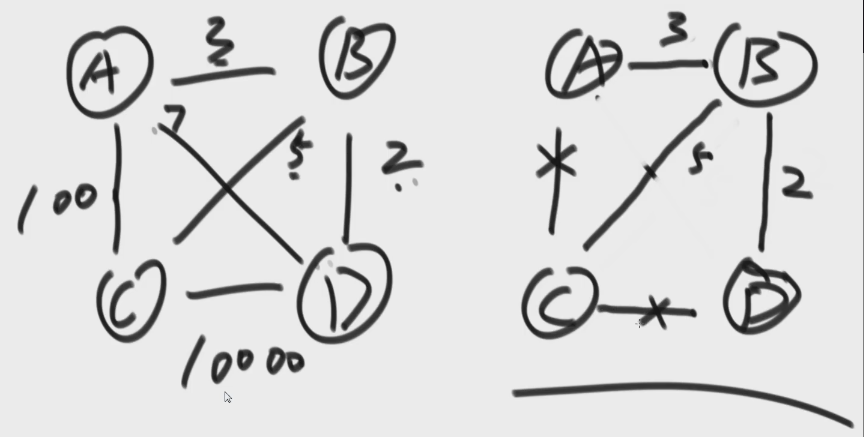 A 3 B
7
5 2
100
C D
10000
A 3 B
5
2
C D